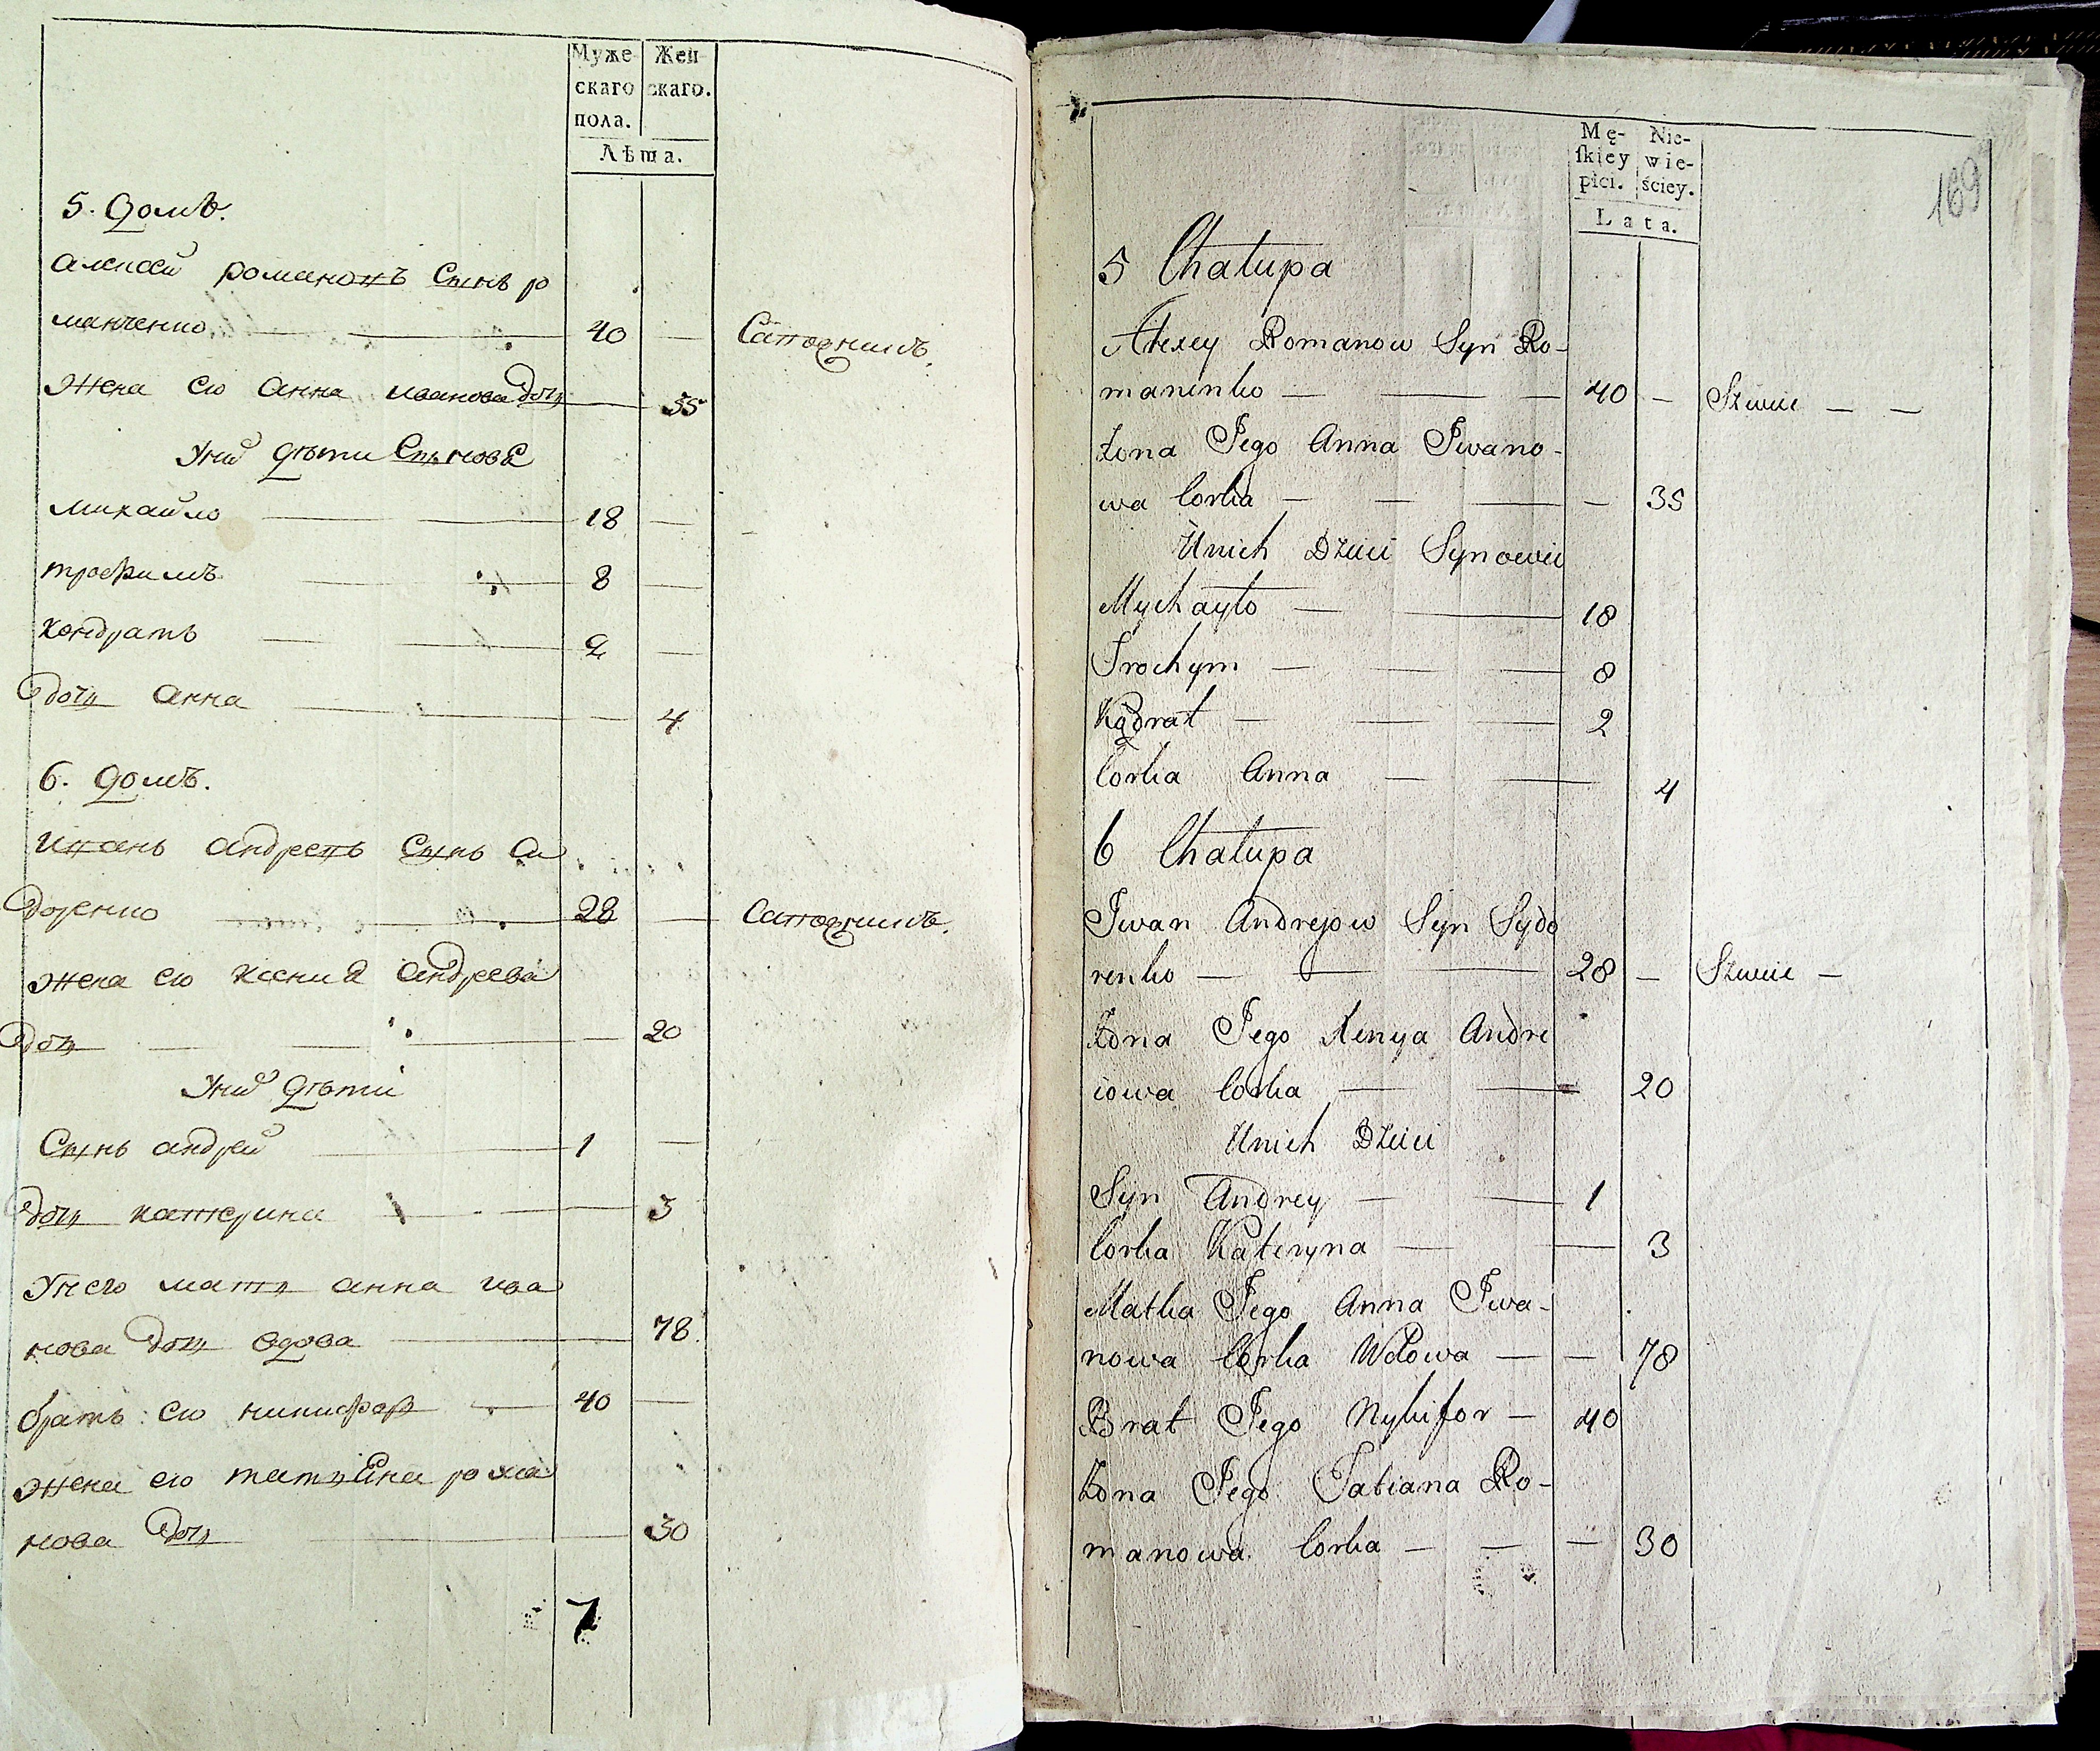 Муже-
скаго
пола.
Жен-
скаго.
Лѣта.
5. домъ.
алексей романовъ сынъ ро
манченко 40 — Сапожникъ
жена ево анна иванова дочь — 35
У них дѣти Сыновѣ
михайло 18 —
трофимъ 8 —
кондратъ 2 —
дочь анна — 4
6. домъ.
иванъ андреевъ сынъ си
доренко 28 — Сапожникъ.
жена ево ксения андреева
дочь — 20
У них дѣти
Сынъ андрей 1 —
дочь катерина — 3
У него мать анна ива
нова дочь вдова — 78
братъ ево никифор 40 —
жена ево татьяна рома
нова дочь 30
7
169
Mę-
ſkiey
płci.
Nie-
wie-
ściey.
Lata.
5 Chałupa
Alexey Romanow Syn Ro-
manenko — 40 — Szwiec — —
Żona Jego Anna Iwano-
wa Corka — — 35
Unich Dzieci Synowie
Mychayło — 18
Trochym — 8
Kądrat — 2
Corka Anna — 4
6 Chałupa
Iwan Andrejow Syn Sydo
renko — 28 — Szwiec —
Żona Jego Xenya Andre
iowa Corka — 20
Unich Dzieci
Syn Andrey — 1
Corka Kateryna — 3
Matka Jego Anna Iwa-
nowa Corka Wdowa — — 78
Brat Jego Nykifor — 40
Żona Jego Tatiana Ro-
manowa Corka — — — 30